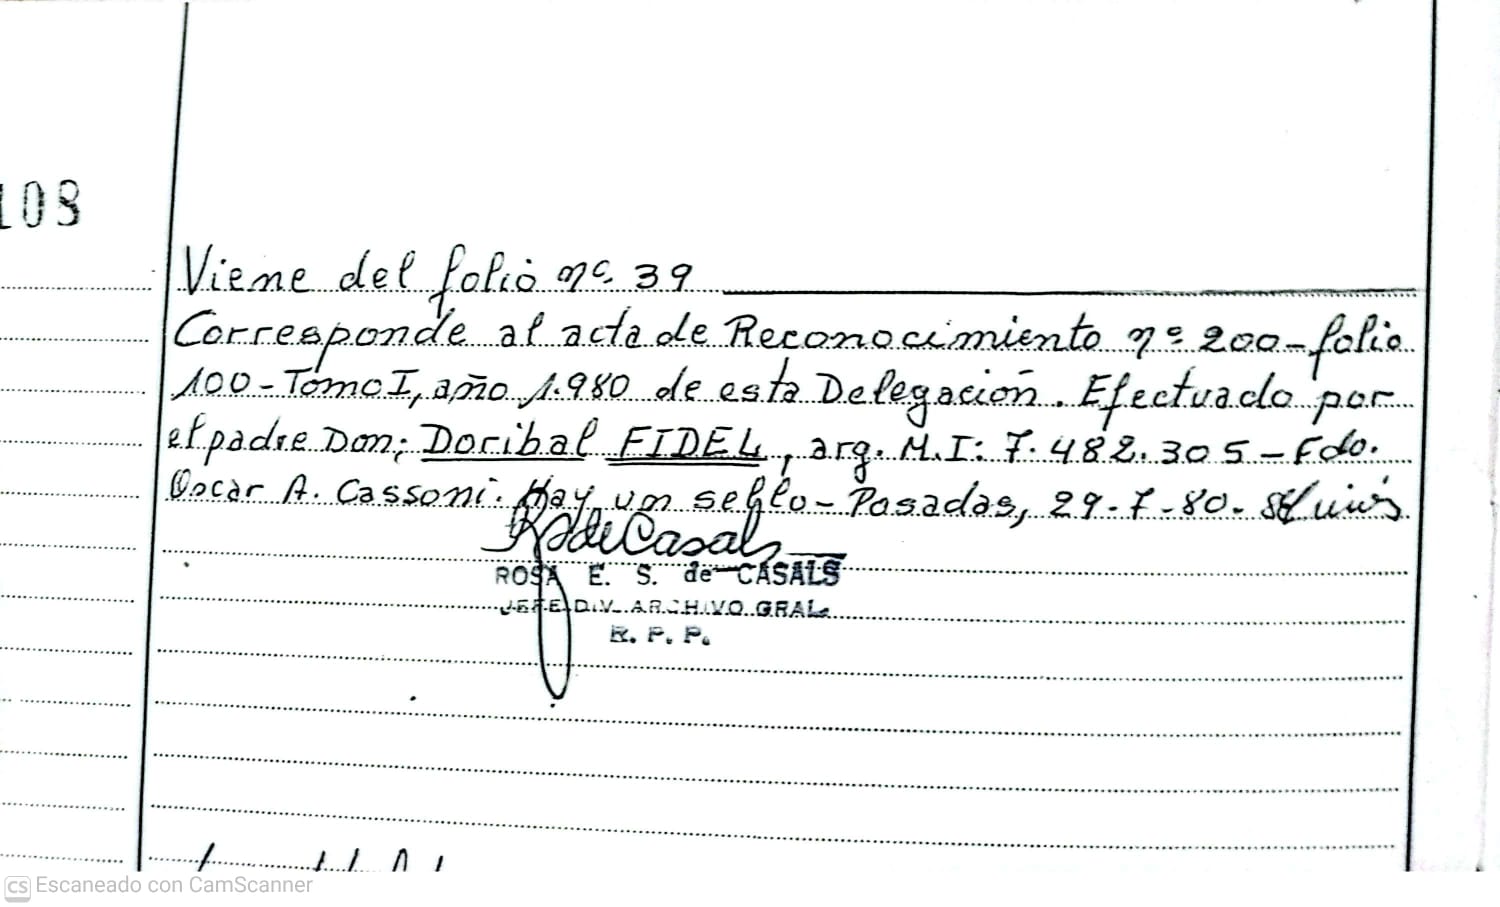 108
Viene del folio nº. 39
Corresponde al acta de Reconocimiento nº 200-folio
100-Tomo I, año 1.980 de esta Delegación. Efectuado por
el padre Don: Doribal FIDEL, arg. M.I: 7.482.305-Fdo.
Oscar A. Cassoni. Hay un sello- Posadas, 29-7-80.
RSdeCasals
ROSA E. S. de CASALS
JEFE DIV. ARCHIVO GRAL.
R. P. P.
CS Escaneado con CamScanner